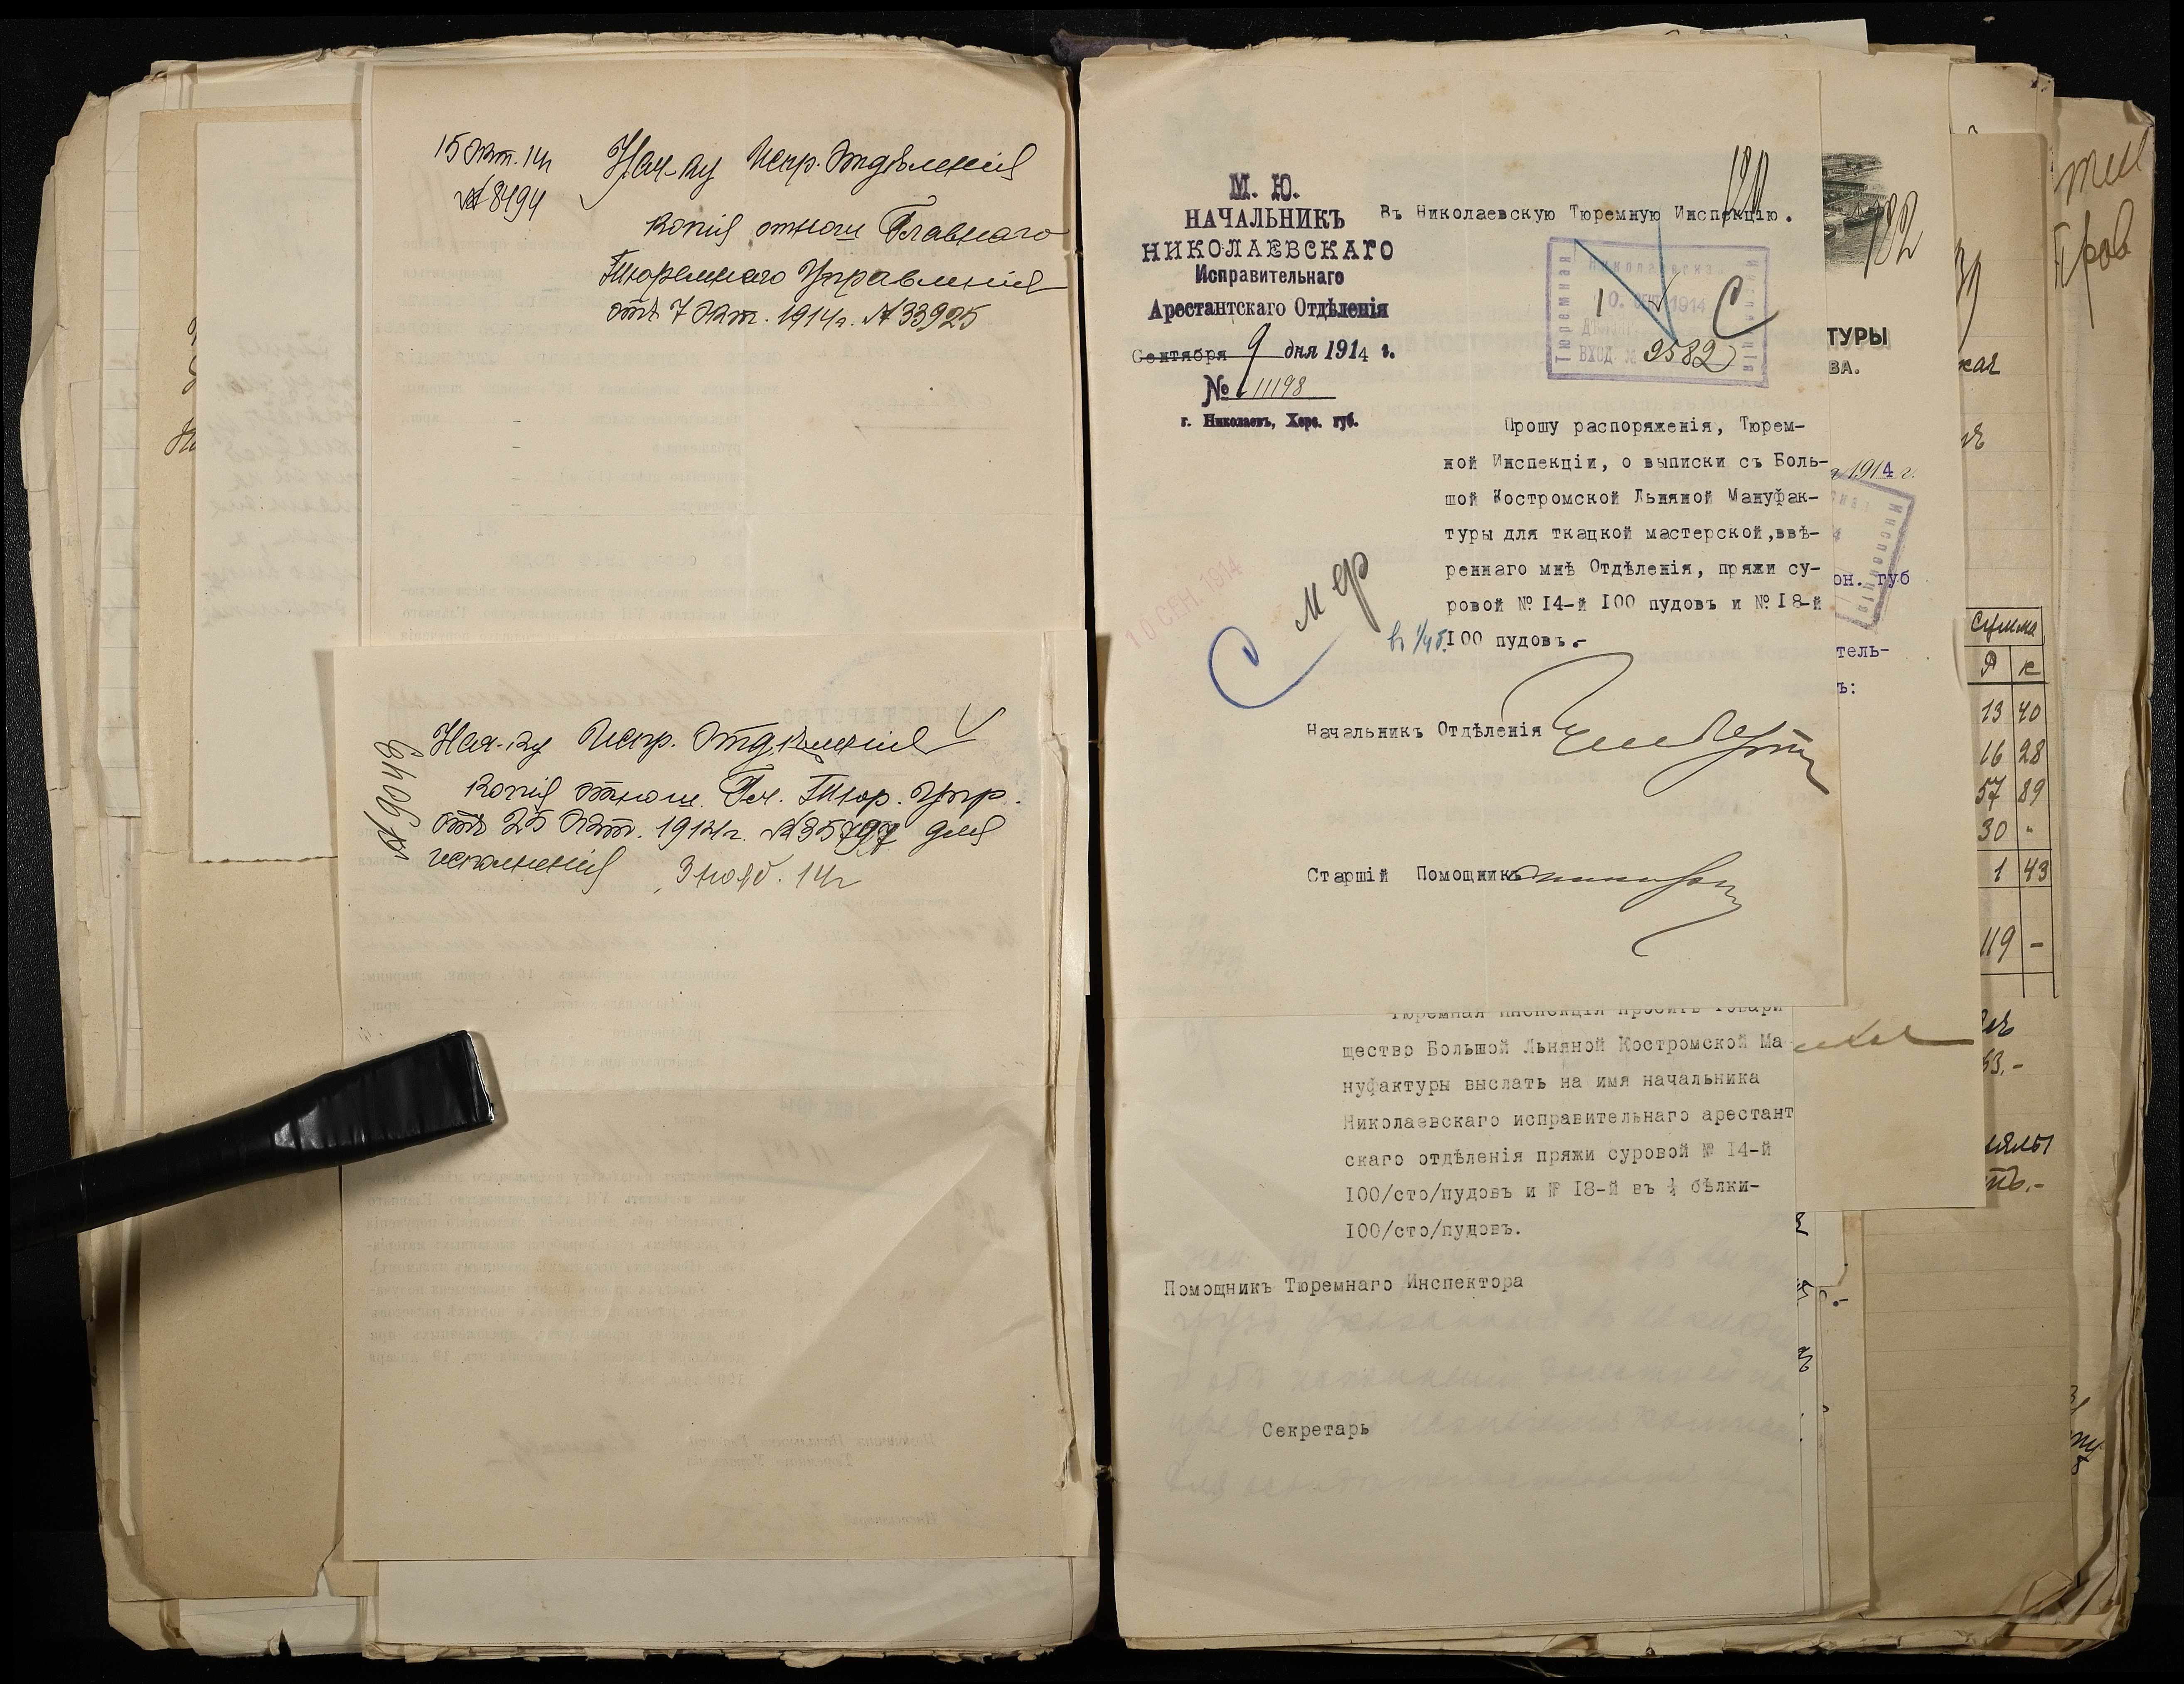 15 Окт. 14г
№ 8494
Нач-ку Испр. Отдѣленія
копія отнош Главнаго
Тюремнаго Управленія
отъ 7 Окт. 1914г. № 33925
Нач-ку Испр. Отдѣленія
№ 9049
копія отнош. Гл. Тюр. Упр.
отъ 25 Окт. 1914г. № 35797 для
исполненія 3 нояб. 14г
М. Ю.
НАЧАЛЬНИКЪ
НИКОЛАЕВСКАГО
Исправительнаго
Арестантскаго Отдѣленія
Сентября 9 дня 1914 г.
№ 11198
г. Николаевъ, Херс. губ.
Въ Николаевскую Тюремную Инспекцію.
Николаевская
Тюремная
Инспекція
10. СЕН. 1914
ВХОД. № 9582
С
10 СЕН. 1914
Прошу распоряженія, Тюрем-
ной Инспекціи, о выписки съ Боль-
шой Костромской Льняной Мануфак-
туры для ткацкой мастерской,ввѣ-
реннаго мнѣ Отдѣленія, пряжи су-
ровой № 14-й 100 пудовъ и № 18-й
в 1/4 б. 100 пудовъ.-
Начальникъ Отдѣленія
Старшій Помощникъ
Тюремная Инспекція проситъ Товари
щество Большой Льняной Костромской Ма
нуфактуры выслать на имя начальника
Николаевскаго исправительнаго арестант
скаго отдѣленія пряжи суровой № 14-й
100/сто/пудовъ и № 18-й въ ¼ бѣлки-
100/сто/пудовъ.
Помощникъ Тюремнаго Инспектора
Секретарь
182
ТУРЫ
ВА.
1914 г.
Инспекція
он. губ
тель-
ъ:
Сумма
Р к
13 40
16 28
57 89
30 "
1 43
119 -
53.-